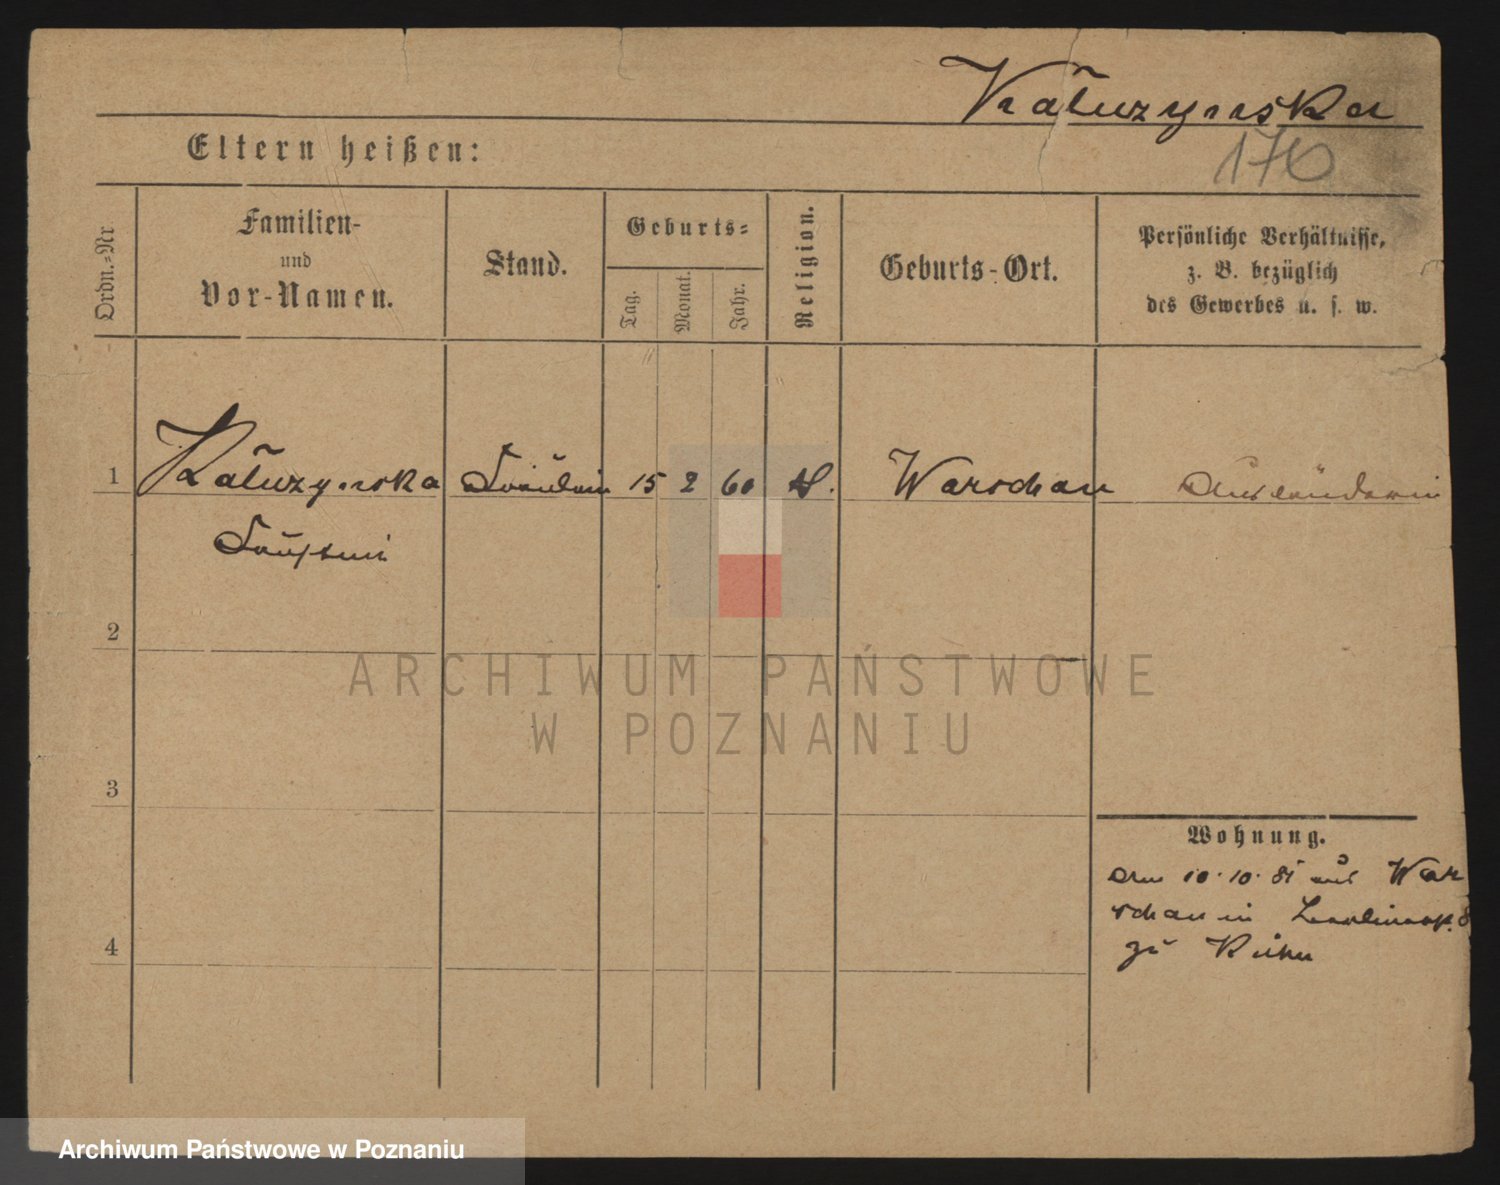 Kałuzynska
170
Eltern heißen:
Ordn.-Nr
Familien-
und
Vor-Namen.
Stand.
Geburts-
Tag.
Monat.
Jahr.
Religion.
Geburts-Ort.
Persönliche Verhältnisse,
z. B. bezüglich
des Gewerbes u. s. w.
1 Kałuzynska Fräulein 15 2 60 Warschau Ausländerin
2
3
4
Wohnung.
10.10.81 aus War
schau in
zu
ARCHIWUM PAŃSTWOWE
W POZNANIU
Archiwum Państwowe w Poznaniu